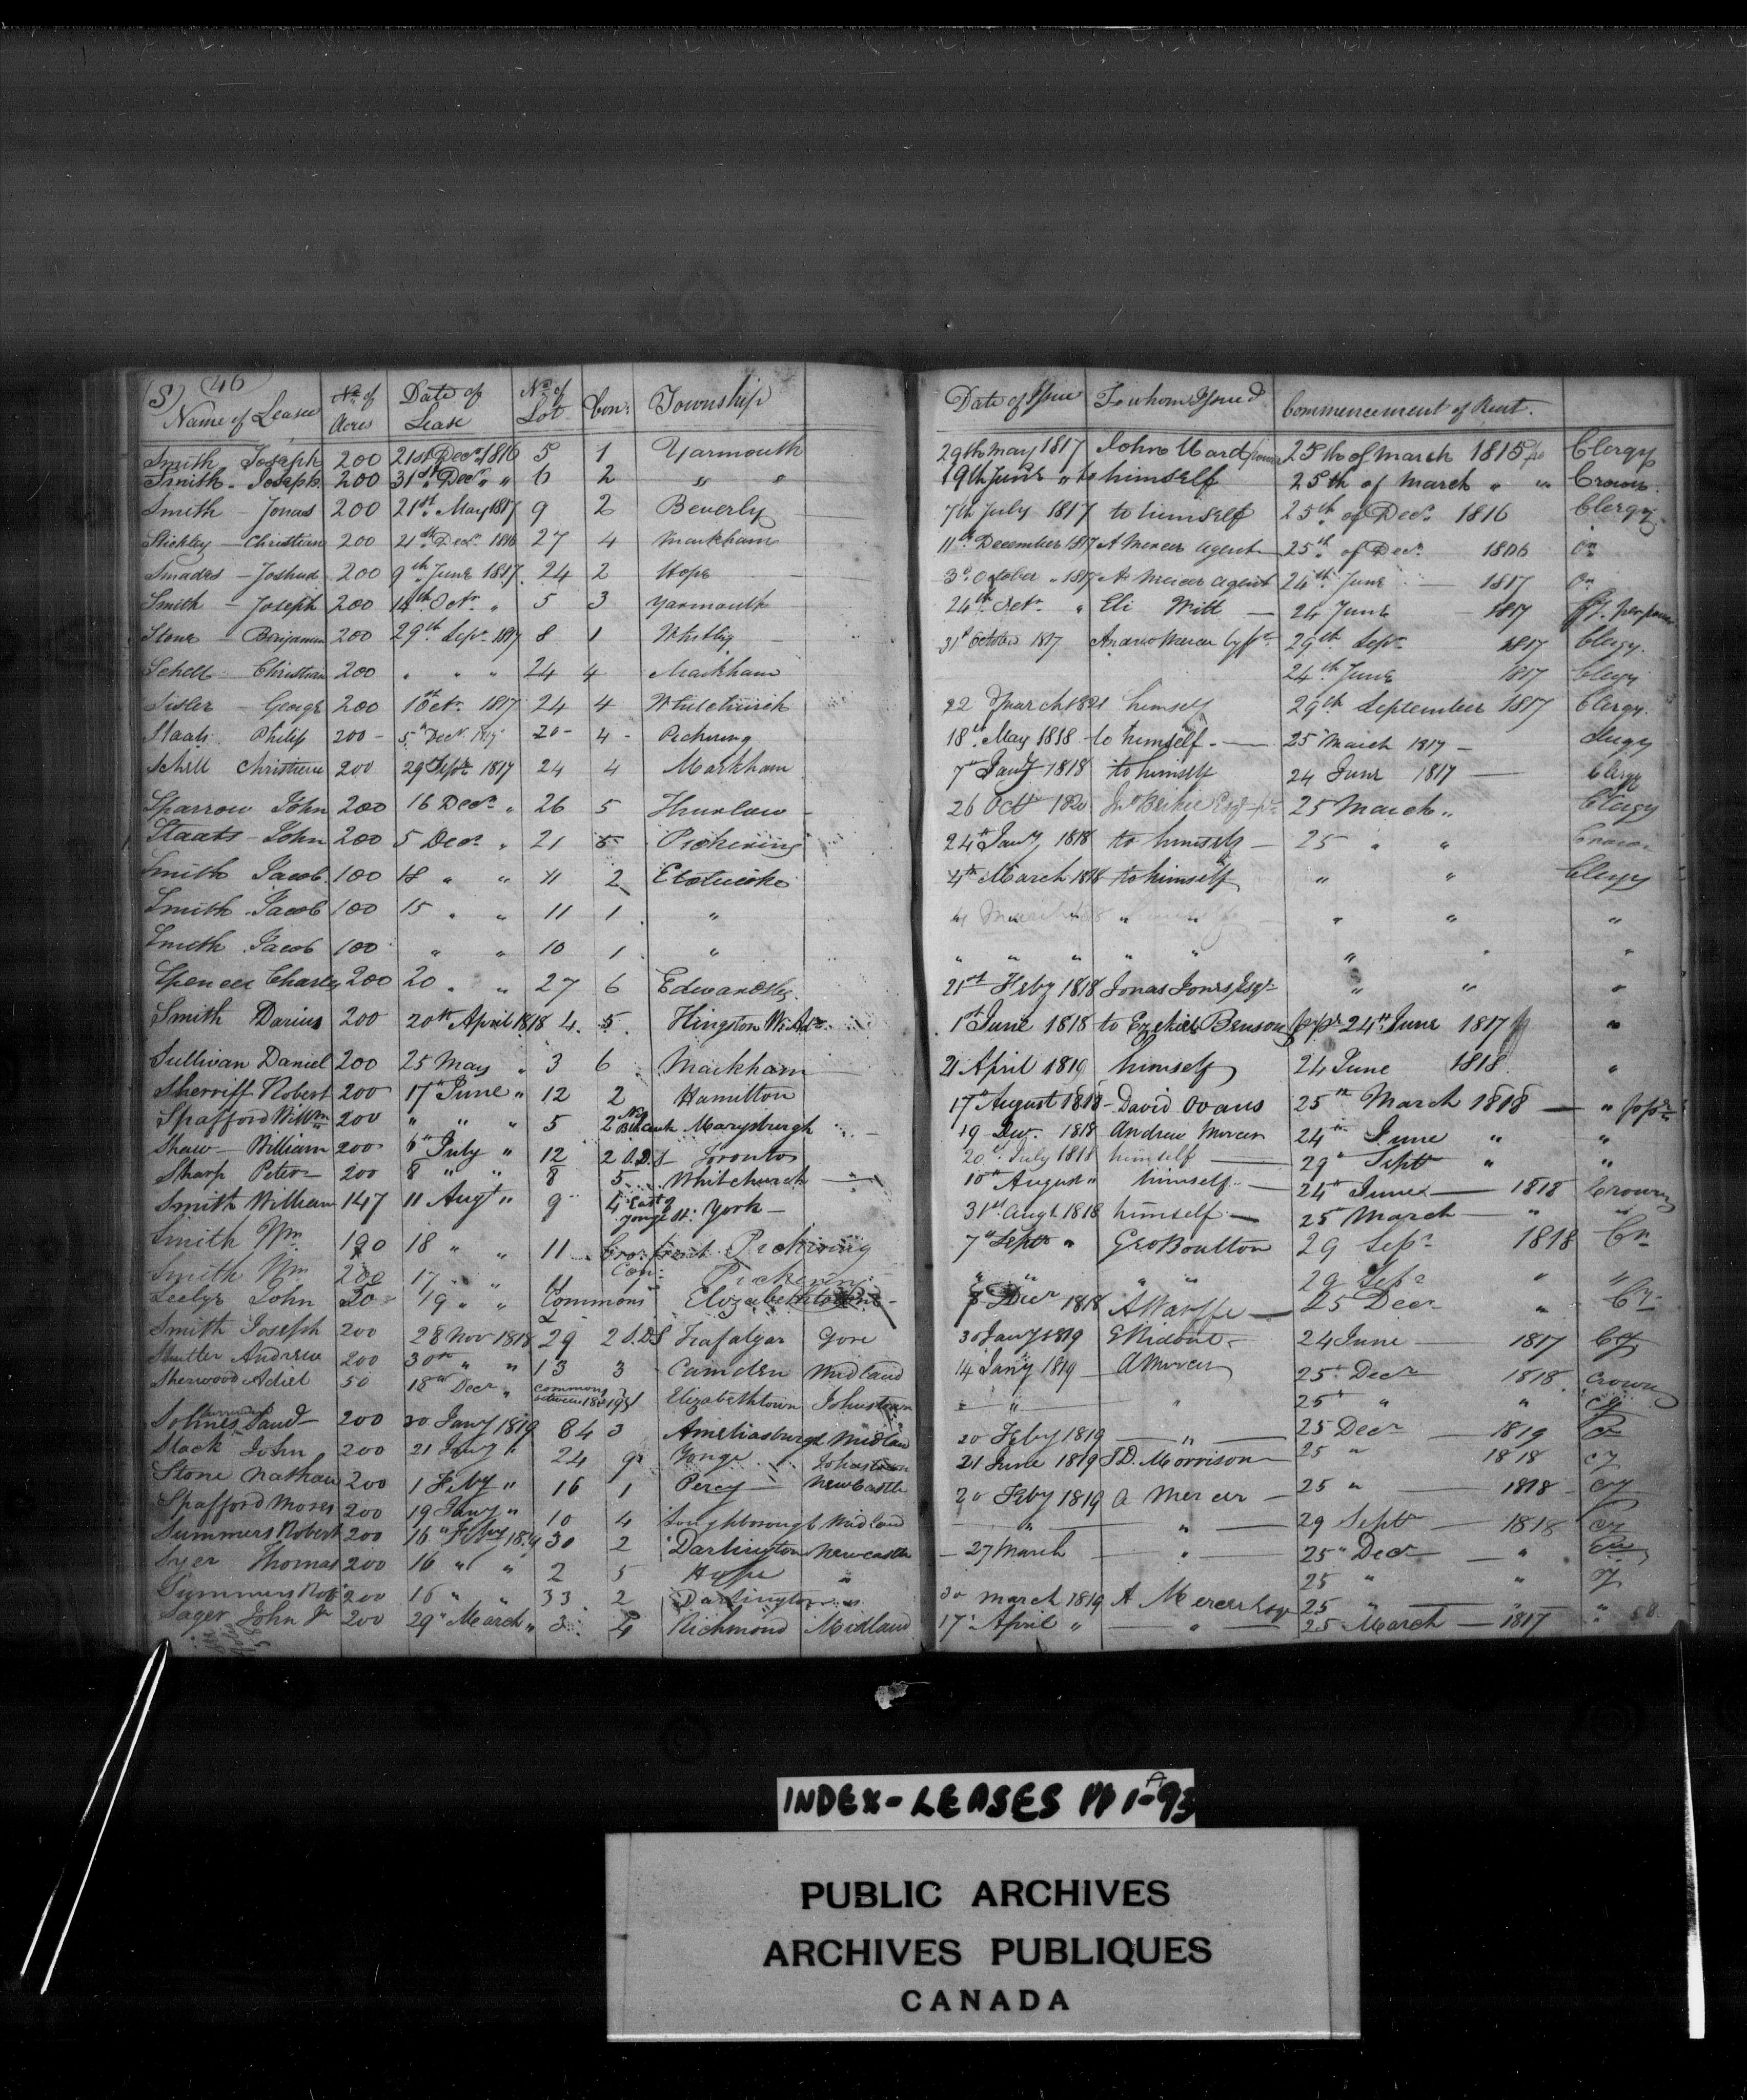 (S) 46
Name of Leasee Nº of Acres Date of Lease Nº of Lot Con: Township Date of Issue To whom Issued Commencement of Rent.
Smith Joseph 200 21st Decr 1816 5 1 Yarmouth 29th May 1817 John Ward 25th of March 1815 Clergy
Smith - Joseph 200 31st Decr " " 6 2 " " 19th June " to himself 25th of March " " Crown
Smith - Jonas 200 21st May 1817 9 2 Beverly 7th July 1817 to himself 25th of Decr 1816 Clergy
Stickley - Christian 200 21st Decr 1816 27 4 Markham 11th December 1817 A Mercer agent 25th of Decr 1816
Smades - Joshua 200 9th June 1817 24 2 Hope 3d October " 1817 A. Mercer agent 24th June 1817
Smith - Joseph 200 14th Octr " 5 3 Yarmouth 24th Octr " Eli Mitt 24 June 1817
Stone - Benjamin 200 29th Sepr 1817 8 1 Whitby 31st October 1817 Andrew Mercer 29th Sepr 1817 Clergy.
Schell Christian 200 " " " 24 4 Markham 24th June 1817 Clergy
Sisler - George 200 1st Octr 1817 24 4 Whitchurch 22 March 1821 himself 29th September 1817 Clergy.
Staats Philip 200 - 5th Decr 1817 20 - 4 - Pickering 18th May 1818 - to himself - 25 March 1817 - Clergy
Schell Christian 200 29th Sepr 1817 24 4 Markham 7th Jany 1818 to himself 24 June 1817 Clergy
Sparrow John 200 16 Decr " 26 5 Thurlow 26 Oct 1820 25 March " Clergy
Staats - John 200 5 Decr " 21 5 Pickering 24th Jany 1818 to himself - 25 " " Crown
Smith Jacob 100 18 " " 11 2 Etobicoke 4th March 1818 to himself " " Clergy
Smith Jacob 100 15 " " 11 1 " 4 March 1818 " himself " " "
Smith Jacob 100 " " 10 1 " " " " " " " " "
Spencer Charles 200 20 " " 27 6 Edwardsbg. 21st Feby 1818 Jonas Jones Esqr " " "
Smith Darius 200 20th April 1818 4. 5. Kingston 1st June 1818 to Ezekiel Benson 24th June 1817 "
Sullivan Daniel 200 25 May " 3 6 Markham 21 April 1819 himself 24 June 1818 "
Sherriff Robert 200 17th June " 12 2 Hamilton 17th August 1818 - David Ovans 25th March 1818 - "
Spafford Willm 200 " " " 5 2 Marysburgh 19 Decr 1818 Andrew Mercer 24th June " "
Shaw - William 200 6th July " 12 2 S.D.S Toronto 20th July 1818 himself 29th Sept " "
Sharp Peter 200 8 " " 8 5 Whitchurch 10th August " himself 24th June - 1818 Crown
Smith William 147 11 Augt " 9 4 East of Yonge St: York - 31st Augt 1818 himself 25th March - " "
Smith Wm 190 18 " " 11 Front Con: Pickering 7th Septr " Geo Boulton 29 Sepr 1818 Cn
Smith Wm 200 17 " " Pickering " " " " 29 Sepr " "
Seelye John 30 19 " " Commons Elizabethtown Decr 1818 25 Decr "
Smith Joseph 200 28 Novr 1818 29 2 S.D.S Trafalgar Gore 30 Jany 1819 24 June 1817 Cy
Shutter Andrew 200 30th " " 13 3 Camden Midland 14 Jany 1819 A Mercer 25th Decr 1818 Crown
Sherwood Adiel 50 18th Decr " Commons between 18 & 19 Elizabethtown Johnstown " " " 25th " " Cy
Solmes Daud 200 20 Jany 1819 84 3 Ameliasburgh Midland 20 Feby 1819 - " - 25 Decr 1819
Slack John 200 21 Jany " 24 9 Yonge Johnstown 21 June 1819 T.D. Morrison 25 " 1818 cy
Stone Nathan 200 1 Feby " 16 1 Percy - Newcastle 20 Feby 1819 A Mercer - 25 " 1818 cy
Spafford Moses 200 19 Jany " 10 4 Loughborough Midland " " 29 Septr 1818 cy
Summers Robert 200 16th Feby 1819 30 2 Darlington Newcastle - 27 March " 25th Decr "
Syer Thomas 200 16 " " 2 5 Hope " 25 " " cy
Summers Robt 200 16 " " 33 2 Darlington " 30 March 1819 A Mercer Esqr 25 " "
Sager John Jr 200 29th March " 3 4 Richmond Midland 17th April " - " - 25 March - 1817 " 58
INDEX - LEASES PP 1-93
PUBLIC ARCHIVES
ARCHIVES PUBLIQUES
CANADA